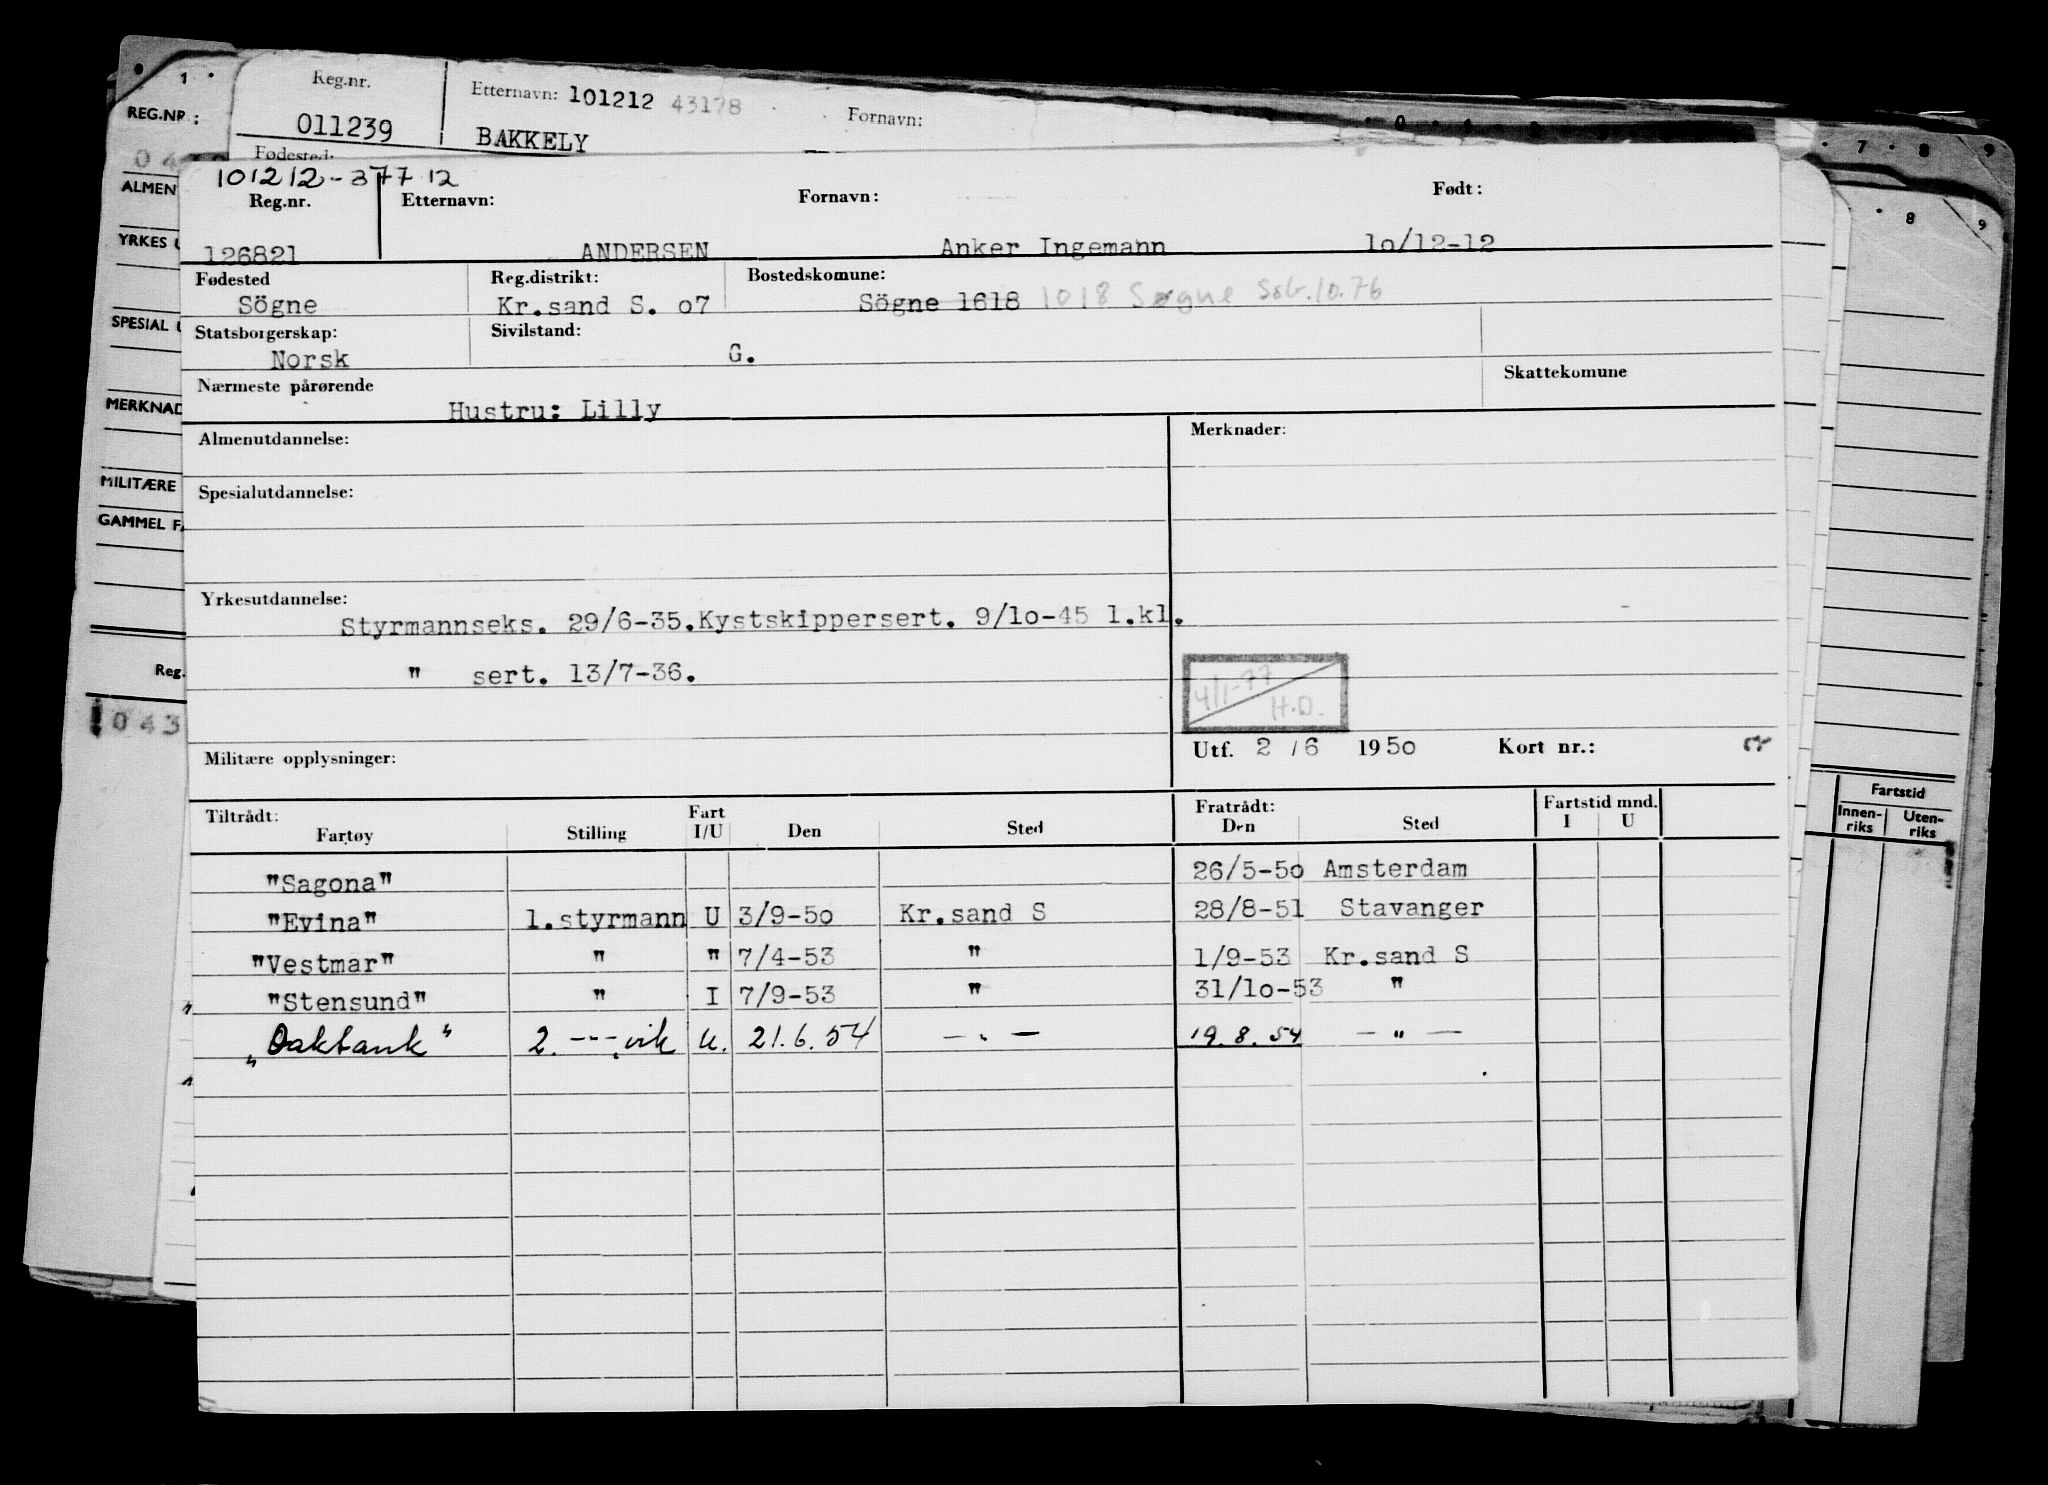 1
REG.NR.:
Reg.nr. Etternavn: 101212 43178 Fornavn:
011239 BAKKELY
0 1 2
7 8 9
8 9
Fødested:
ALMEN
YRKES U
SPESIAL U
MERKNAD
MILITÆRE
GAMMEL FA
Reg.
043
101212-37712
Reg.nr. Etternavn: Fornavn: Født:
126821 ANDERSEN Anker Ingemann 1o/12-12
Fødested Reg.distrikt: Bostedskomune:
Sögne Kr.sand S. o7 Sögne 1618 1018 Søgne Sst.10.76
Statsborgerskap: Sivilstand:
Norsk G.
Nærmeste pårørende Skattekomune
Hustru: Lilly
Almenutdannelse: Merknader:
Spesialutdannelse:
Yrkesutdannelse:
Styrmannseks. 29/6-35.Kystskippersert. 9/1o-45 1.kl.
" sert. 13/7-36.
4/1-77
H.D.
Militære opplysninger: Utf. 2 / 6 1950 Kort nr.:
Tiltrådt: Fratrådt: Fartstid mnd.
Fartøy Stilling Fart I/U Den Sted Den Sted I U
"Sagona" 26/5-5o Amsterdam
"Evina" 1.styrmann U 3/9-5o Kr.sand S 28/8-51 Stavanger
"Vestmar" " " 7/4-53 " 1/9-53 Kr.sand S
"Stensund" " I 7/9-53 " 31/1o-53 "
„Oakbank" 2. ---,vik U. 21.6.54 — „ — 19.8.54 — " —
Fartstid
Innenriks Utenriks